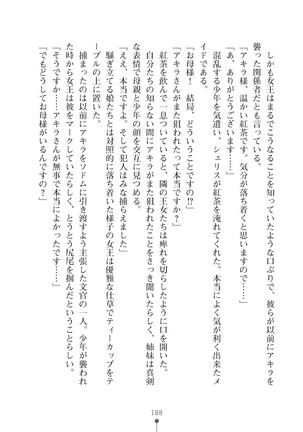 しかも女王はまるでこうなることを知っていたような口ぶりで、彼らが以前にアキラを
襲った関係者だとも言っている。
「アキラ様、温かい紅茶です。気分が落ち着くと思います」
「あ、ありがとうございます……」
混乱する少年を気遣い、シェリスが紅茶を淹れてくれた。本当によく気が利く出来たメ
イドである。
「お母様！　結局、どういうことですの!?」
「アキラさんがまた狙われたって本当ですか！」
紅茶を飲んで一息ついていると、隣の王女たちは痺れを切らしたように口を開いた。
自分たちの知らない間にアキラがまた狙われたことをさっき聞いたらしく、姉妹は真剣
な表情で母親と少年の顔を交互に見つめる。
「ええ、本当ですよ。そして犯人はみな捕らえました」
騒ぎ立てる娘たちとは対照的に落ち着いた様子の女王は優雅な仕草でティーカップをテ
ーブルの上に置いた。
捕まったのは以前にアキラをソドムに引き渡すよう主張した文官の一人。少年が襲われ
た時から女王は彼をマークしていたらしく、とうとう尻尾を掴んだということらしい。
「そうですか……アキラさんが無事で本当によかったです……」
「でもどうしてお母様がいるんですの？」
188